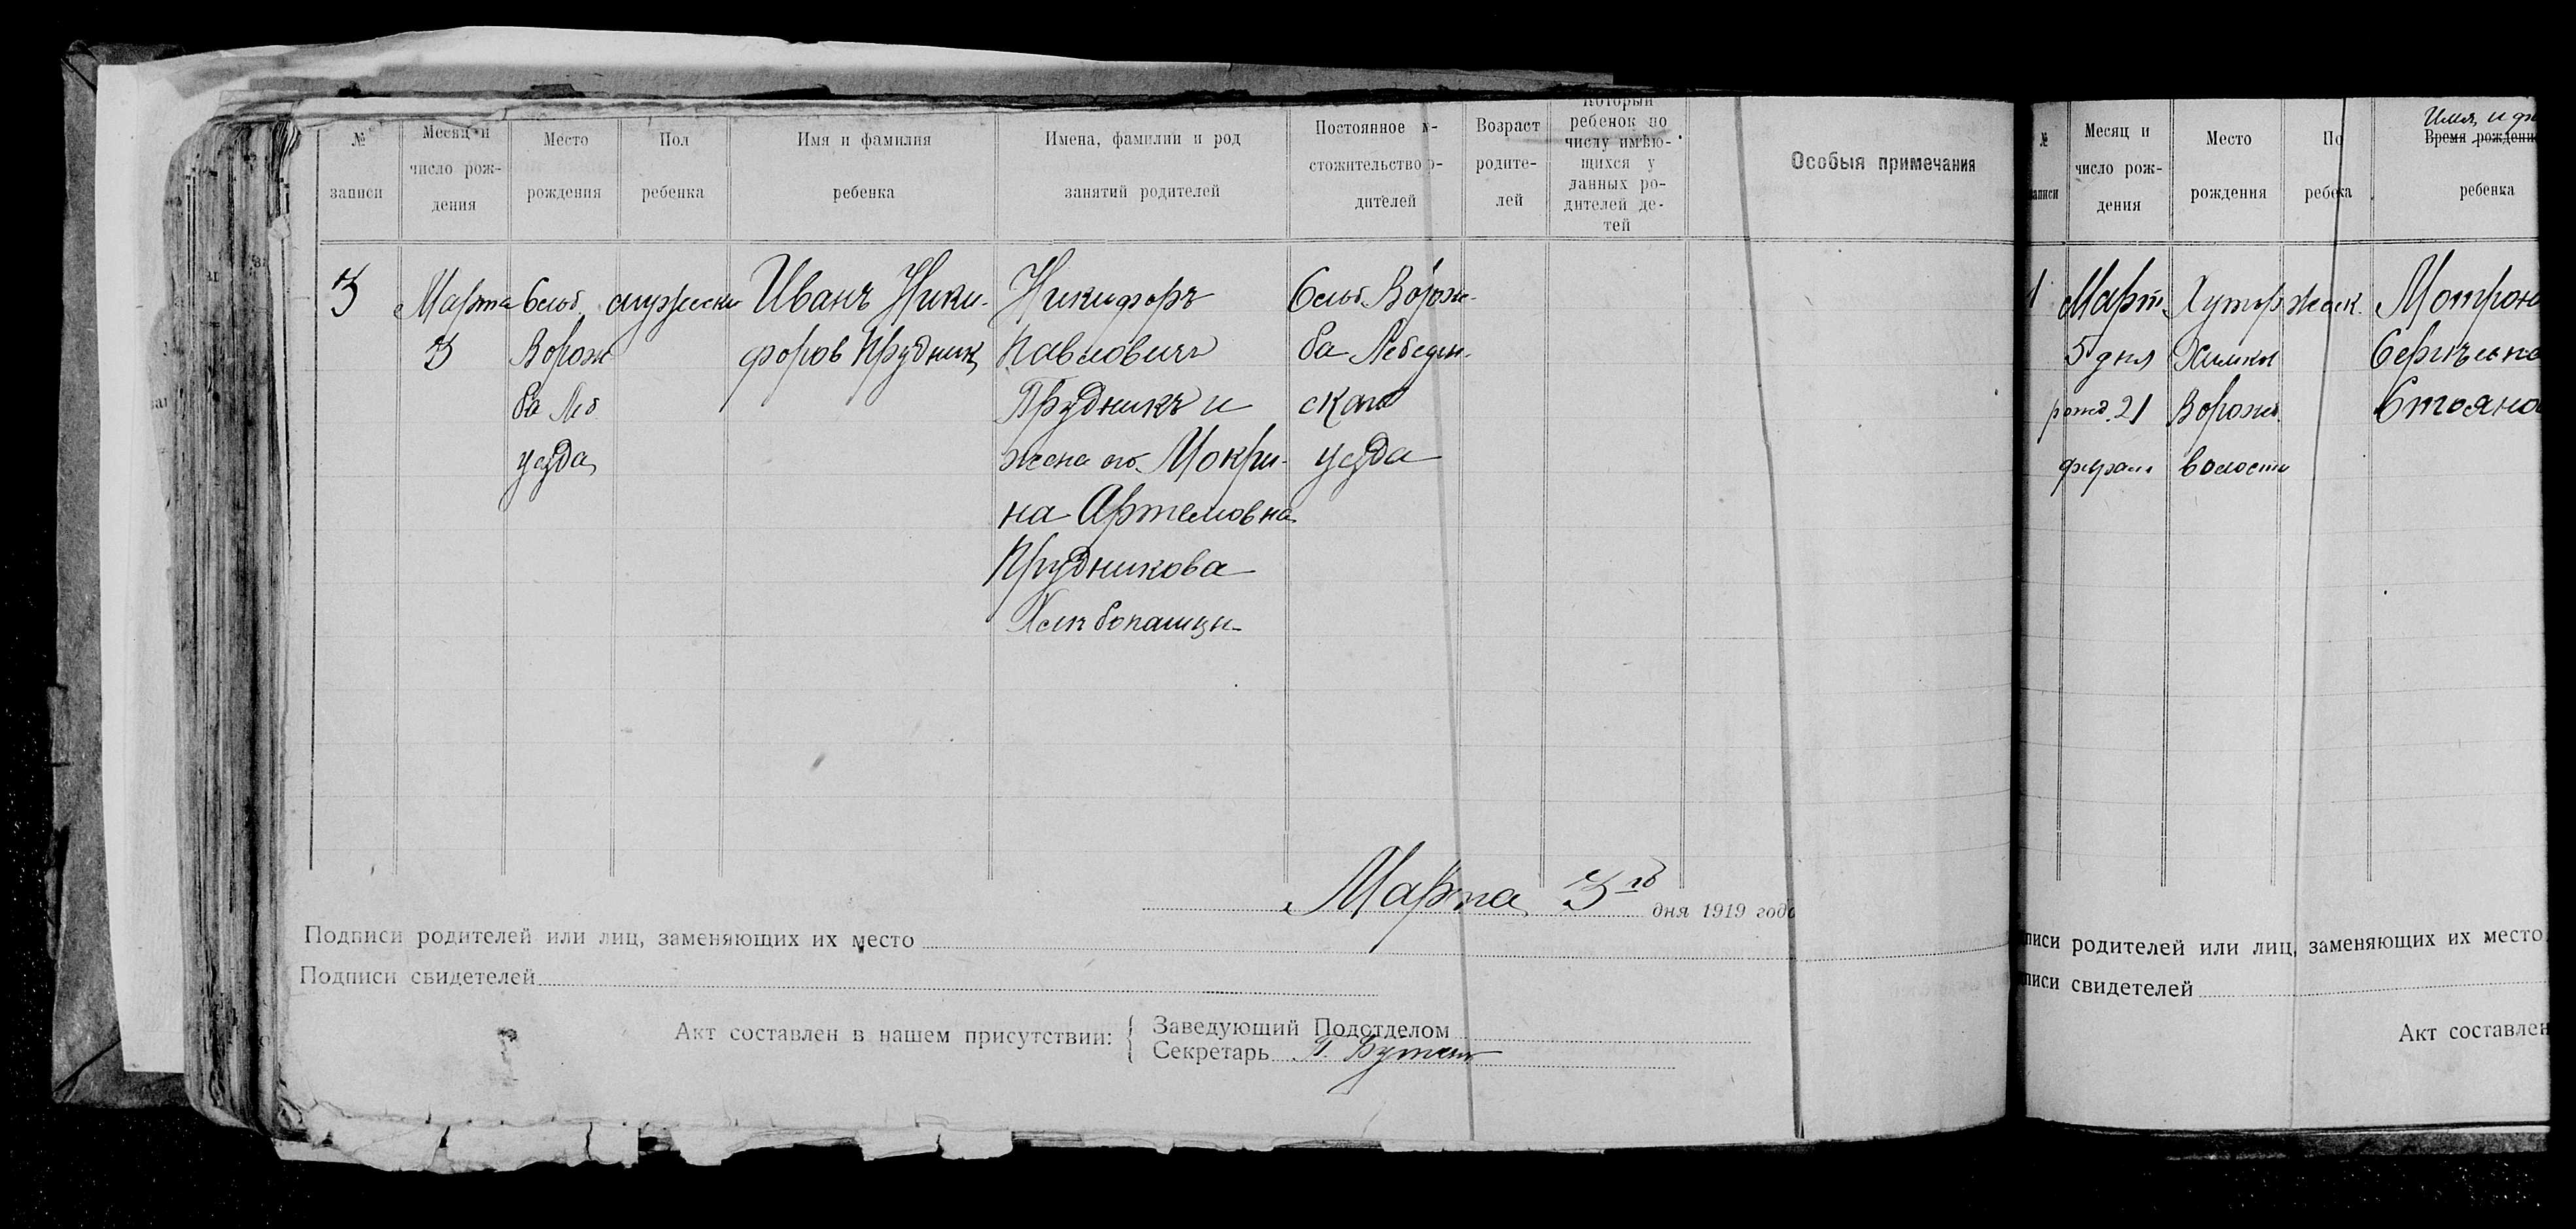 № записи
Месяц и число рождения
Место рождения
Пол ребенка
Имя и фамилия ребенка
Имена, фамилии и род занятий родителей
Постоянное дителей
Возраст родите-лей
который ребенок по числу имѣю-щихся у данных ро-дителей де-тей
Особыя примечания
3
Марта
3
Слоб.
Ворож
ба Леб
уезда
мужески
Иванъ Ники-
форов Прудник
Никифоръ
Павлович
Прудникъ и
жена его Мокри-
на Артемовна
Прудникова
Слоб. Ворож-
ба Лебедин-
скаго
уезда
Марта 3го дня 1919 года
Подписи родителей или лиц, заменяющих их место
Подписи свидетелей
Акт составлен в нашем присутствии:
Заведующий Подотделом
Секретарь
№
Месяц и число рождения
Место рождения
По ребека
Имя и фа
Время рождени
ребенка
Март
5 дня
рожд. 21
Хутор
Ворожб.
волости
женск.
Мотрона
Стояно
писи родителей или лиц, заменяющих их место
писи свидетелей
Акт составлен